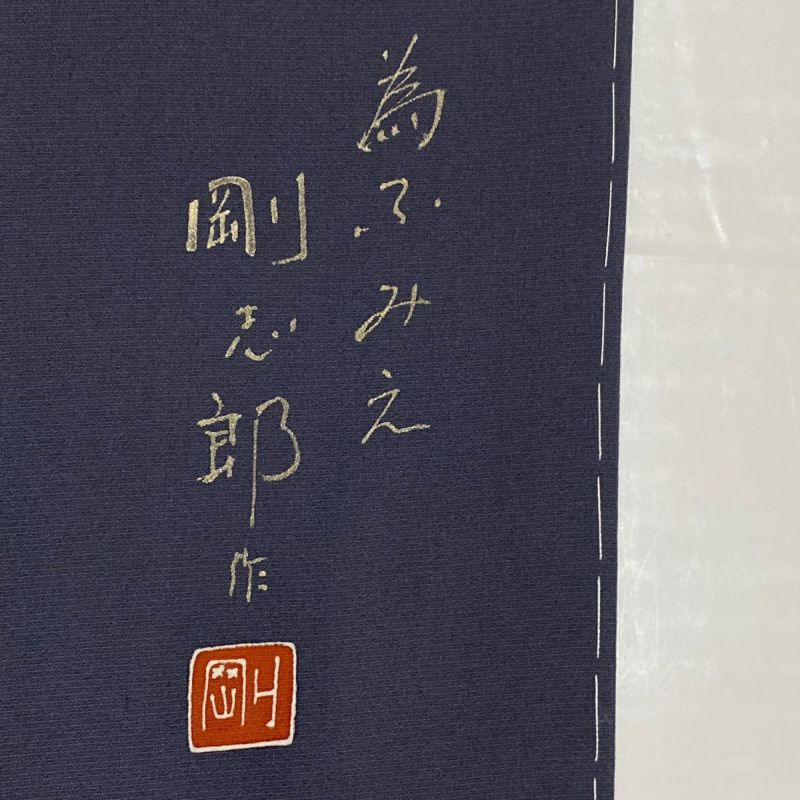 為ふみえ
剛志郎作
剛